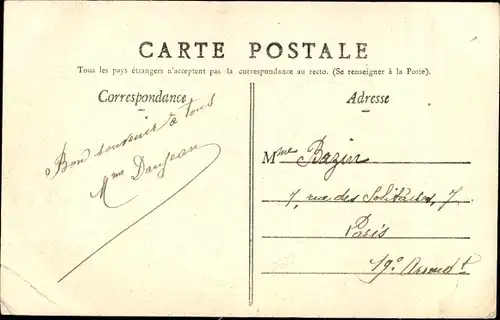 CARTE POSTALE
Tous les pays étrangers n'acceptent pas la correspondance au recto. (Se renseigner à la Poste).
Correspondance
Adresse
Bon souvenir à tous
Mme Daujean
Mme Bazin
7, rue des Solitaires, 7
Paris
19e Arrondt